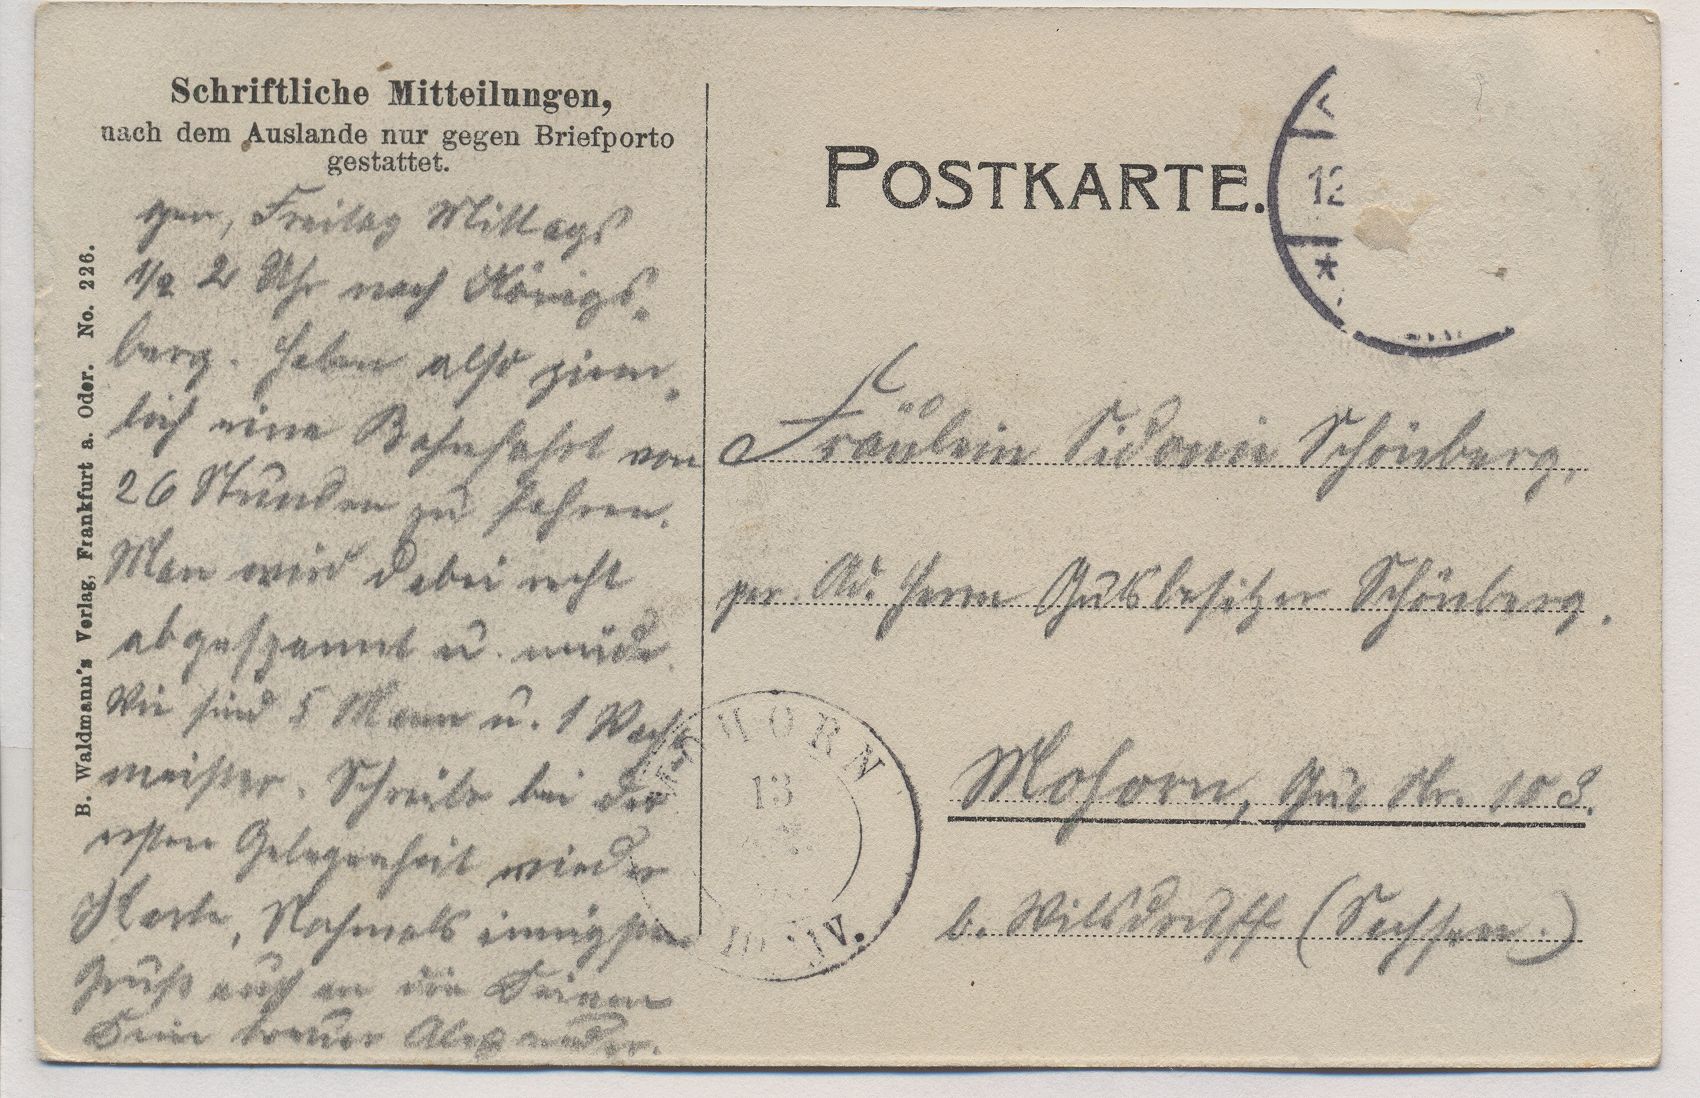 Schriftliche Mitteilungen,
nach dem Auslande nur gegen Briefporto
gestattet.
gen, Freitag Mittags
1/2 2 Uhr nach Königs-
berg. Haben also ziem-
lich eine Bahnfahrt von
26 Stunden zu fahren.
Man wird dabei recht
abgespannt u. müde.
Wir sind 5 Mann u. 1 Wacht
meister. Schreibe bei der
ersten Gelegenheit wieder
Karte, Nochmals innigsten
Gruß auch an die Deinen
Dein treuer Alexander.
B. Waldmann's Verlag, Frankfurt a. Oder. No. 226.
POSTKARTE.
12
*
Fräulein Sidonie Schönberg,
per. Ad. Herrn Gutsbesitzer Schönberg.
Mohorn, Gut Nr. 103.
b. Wilsdruff (Sachsen.)
MOHORN
13
IV.